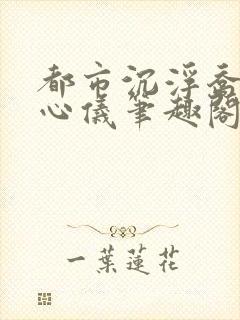 都市沉浮乔
心儀筆趣閣
一葉蓮花